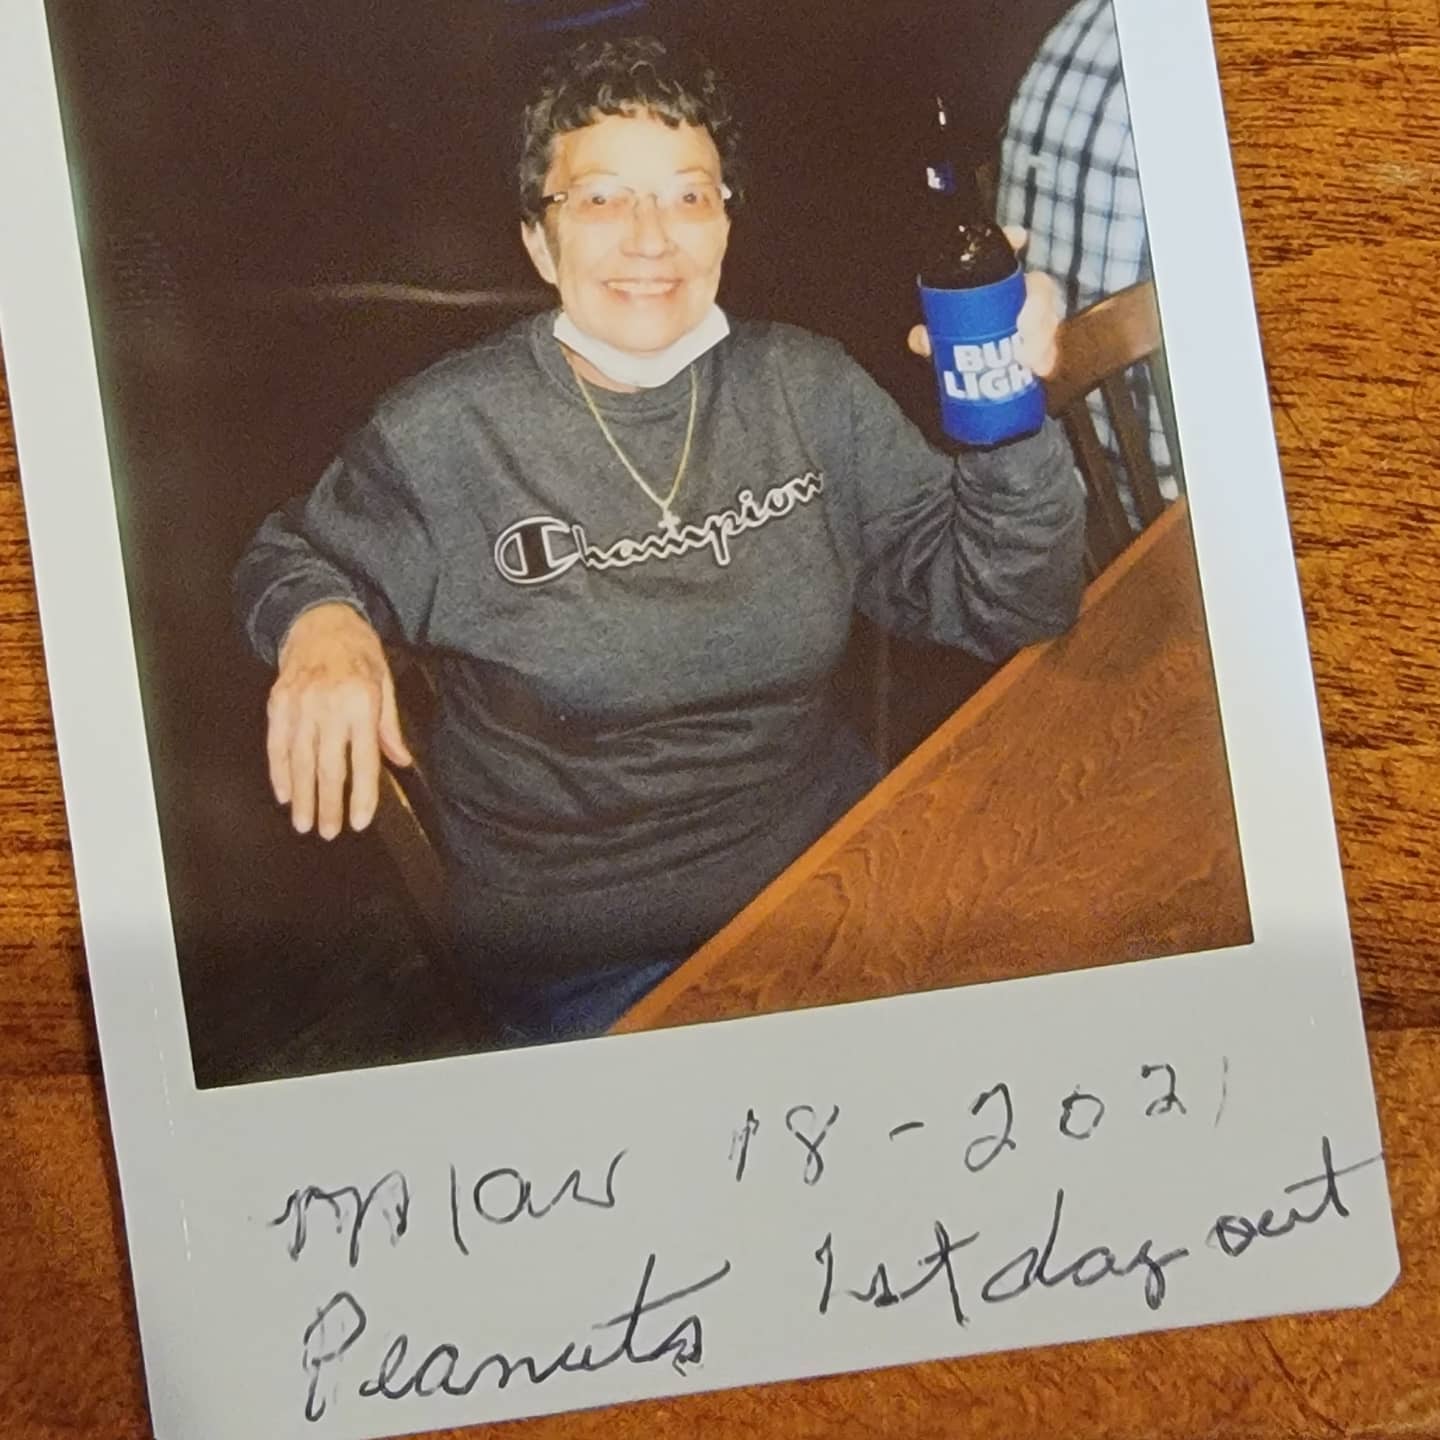 BUD
LIGH
Champion
Mar 18-2021
Peanuts 1st day out